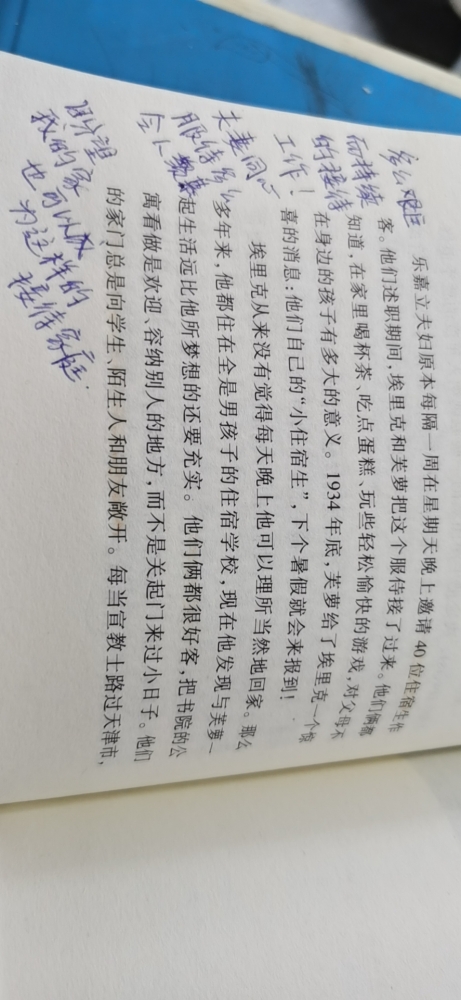 多么艰巨
而持续
的接待
工作！
夫妻同心
服侍
令人羡慕
盼望
我的家
也可以成
为这样的
接待家庭.
乐嘉立夫妇原本每隔一周在星期天晚上邀请 40 位住宿生作
客。他们述职期间，埃里克和芙萝把这个服侍接了过来。他们俩都
知道，在家里喝杯茶、吃点蛋糕、玩些轻松愉快的游戏，对父母不
在身边的孩子有多大的意义。1934 年底，芙萝给了埃里克一个惊
喜的消息：他们自己的“小住宿生”，下个暑假就会来报到！
埃里克从来没有觉得每天晚上他可以理所当然地回家。那么
多年来，他都住在全是男孩子的住宿学校，现在他发现与芙萝一
起生活远比他所梦想的还要充实。他们俩都很好客，把书院的公
寓看做是欢迎、容纳别人的地方，而不是关起门来过小日子。他们
的家门总是向学生、陌生人和朋友敞开。每当宣教士路过天津市，